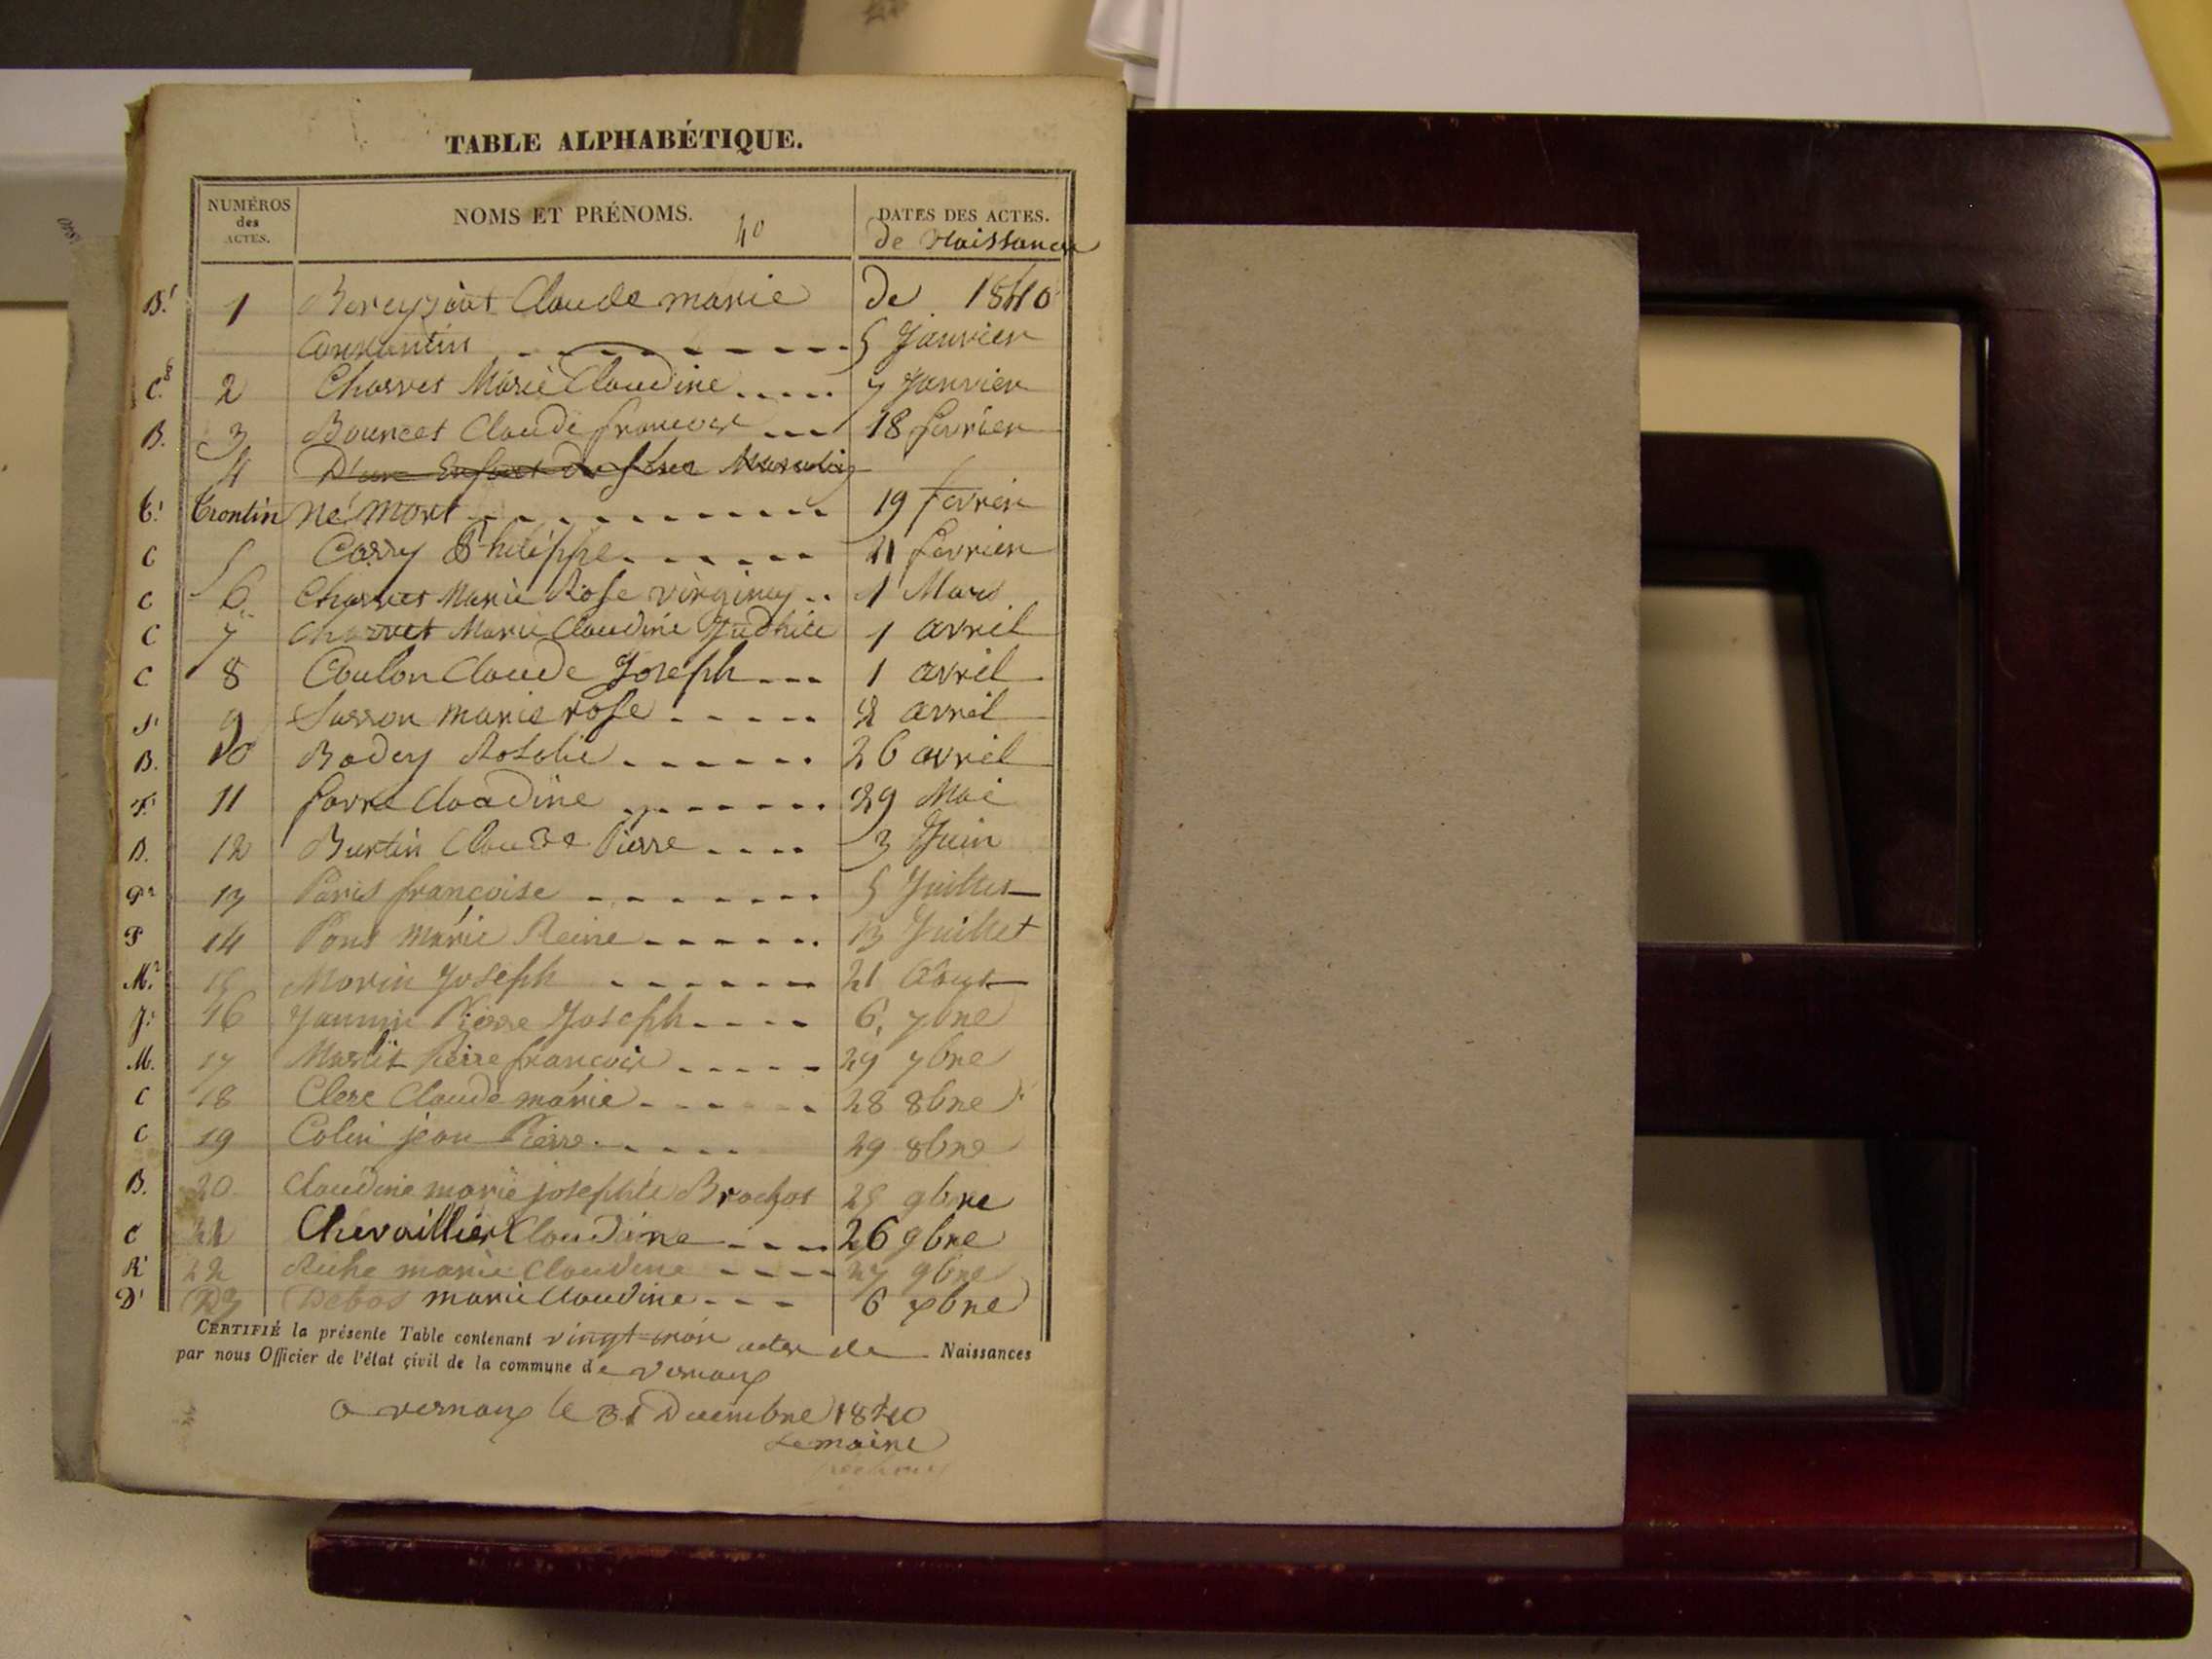 TABLE ALPHABÉTIQUE.
NUMÉROS des ACTES. NOMS ET PRÉNOMS. 40 DATES DES ACTES. de Naissance
B. 1 Claude marie de 1840
5 Janvier
C. 2 Charves Marie Claudine 7 Janvier
B. 3 Claude francois 18 fevrier
4 D'une Enfant du sexe
t. Trontin né mort 19 fevrier
C 5 Carry Philippe 21 fevrier
C 6 Charves Marie Rose virginey 1 Mars
C 7 Charvet Marie Claudine 1 avril
C 8 Coulon Claude Joseph 1 avril
S. 9 Sasson marie rose 2 avril
B. 10 Badey Rosalie 26 avril
F. 11 favre Claudine 29 Mai
B. 12 Burtin Claude Pierre 3 Juin
P. 13 Paris francoise 5 Juillet
P 14 Pons marie Reine 13 Juillet
M. 15 Morin Joseph 21 Aout
J. 16 Jannin Pierre Joseph 6 7bre
M. 17 Pierre francois 29 7bre
C 18 Clerc Claude marie 28 8bre
C 19 Colin jean Pierre 29 8bre
B. 20 Claudine marie josephte Brochot 25 9bre
C 21 Chevaillier Claudine 26 9bre
R 22 Riche marie Claudine 27 9bre
D 23 Debos marie Claudine 6 xbre
CERTIFIÉ la présente Table contenant vingt-trois actes de Naissances
par nous Officier de l'état civil de la commune de vernoux
a vernoux le 31 Decembre 1840
Le maire